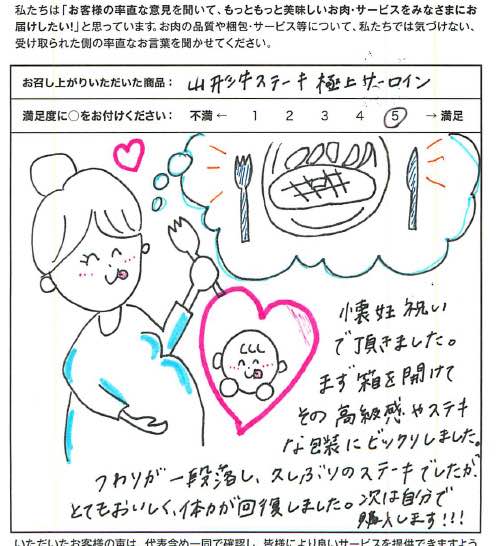 私たちは「お客様の率直な意見を聞いて、もっともっと美味しいお肉・サービスをみなさまにお
届けしたい!」と思っています。お肉の品質や梱包・サービス等について、私たちでは気づけない、
受け取られた側の率直なお言葉を聞かせてください。
お召し上がりいただいた商品: 山形牛ステーキ 極上サーロイン
満足度に○をお付けください: 不満 ← 1 2 3 4 5 → 満足
懐妊祝い
で頂きました。
まず箱を開けて
その高級感やステキ
な包装にビックリしました。
つわりが一段落し、久しぶりのステーキでしたが、
とてもおいしく、体力が回復しました。次は自分で
購入します!!!
いただいたお客様の声は、代表含め一同で確認し、皆様により良いサービスを提供できますよう